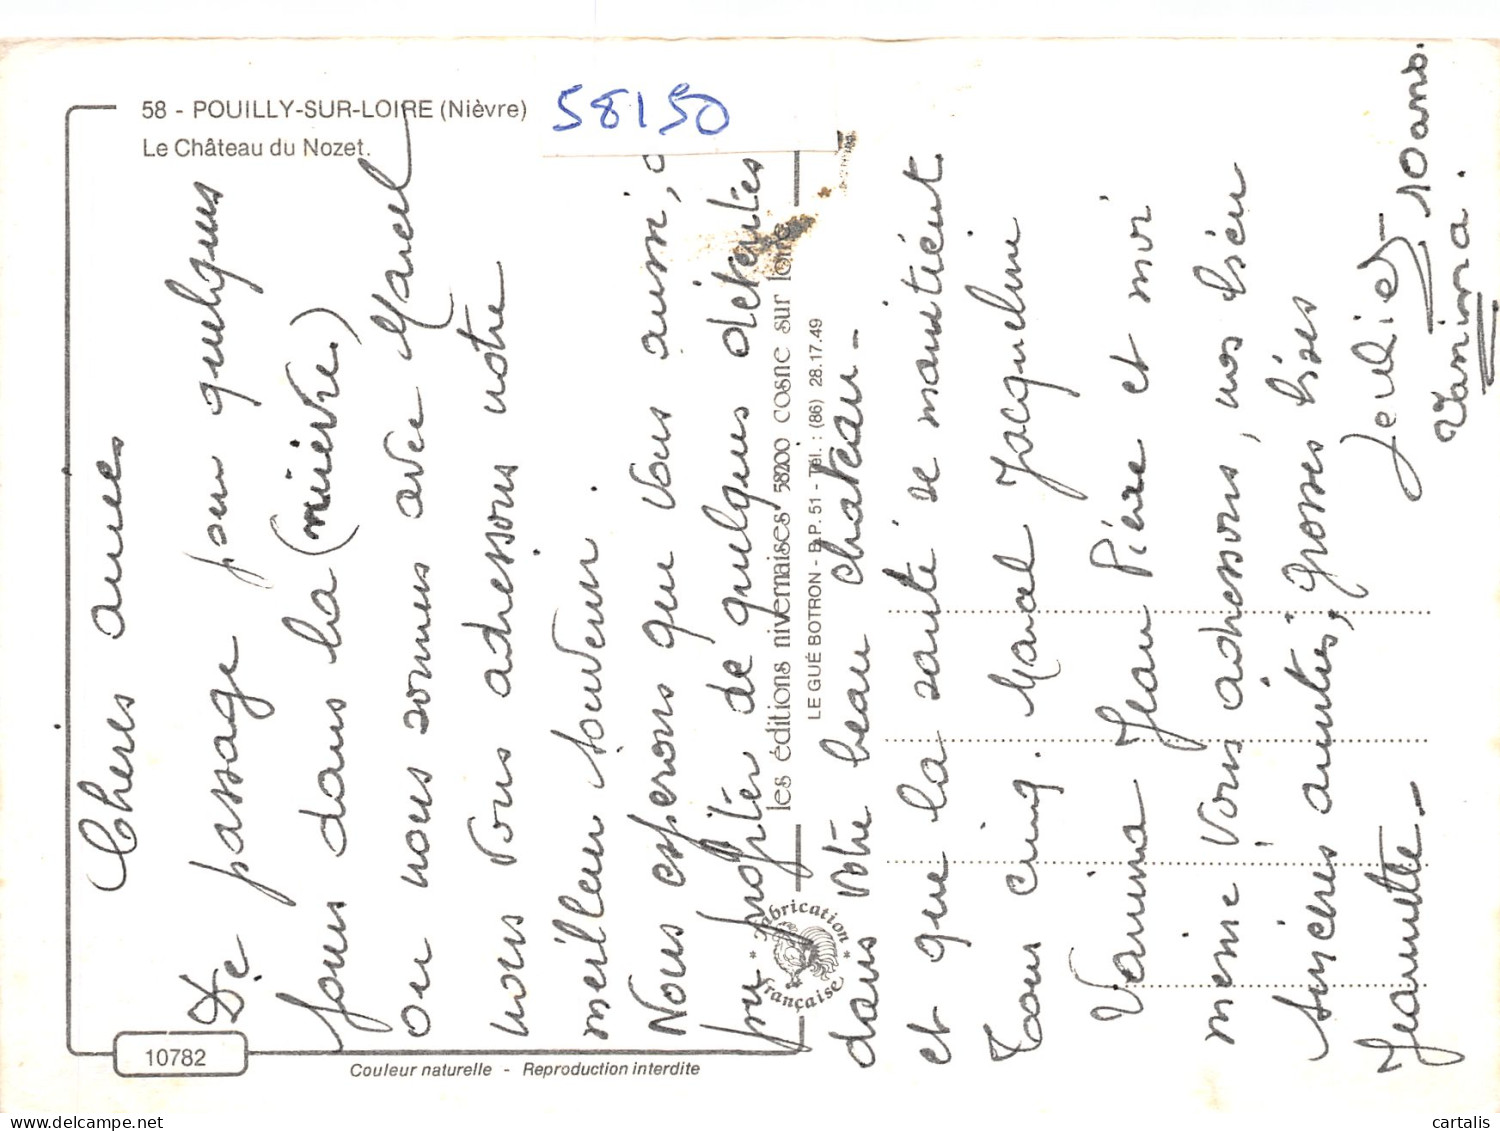 58 - POUILLY-SUR-LOIRE (Nièvre)
Le Château du Nozet.
58150
10782
Couleur naturelle - Reproduction interdite
les éditions nivernaises 58200 cosne sur loire
LE GUÉ BOTRON - B.P. 51 - Tél. : (86) 28.17.49
Fabrication française
Cheres amies
De passage pour quelques
jours dans la (nièvre)
ou nous sommes avec Marcel
nous vous adressons notre
meilleur souvenir.
Nous esperons que vous aussi,
pu profiter de quelques détentes
dans votre beau chateau -
et que la santé se maintient.
Tous cinq. Marcel Jacqueline
Vanina Jean Pierre et moi
meme vous adressons, nos bien
sincères amitiés, grosses bises
Jeannette -
Juillet
10 ans.
Vanina.
delcampe.net
cartalis